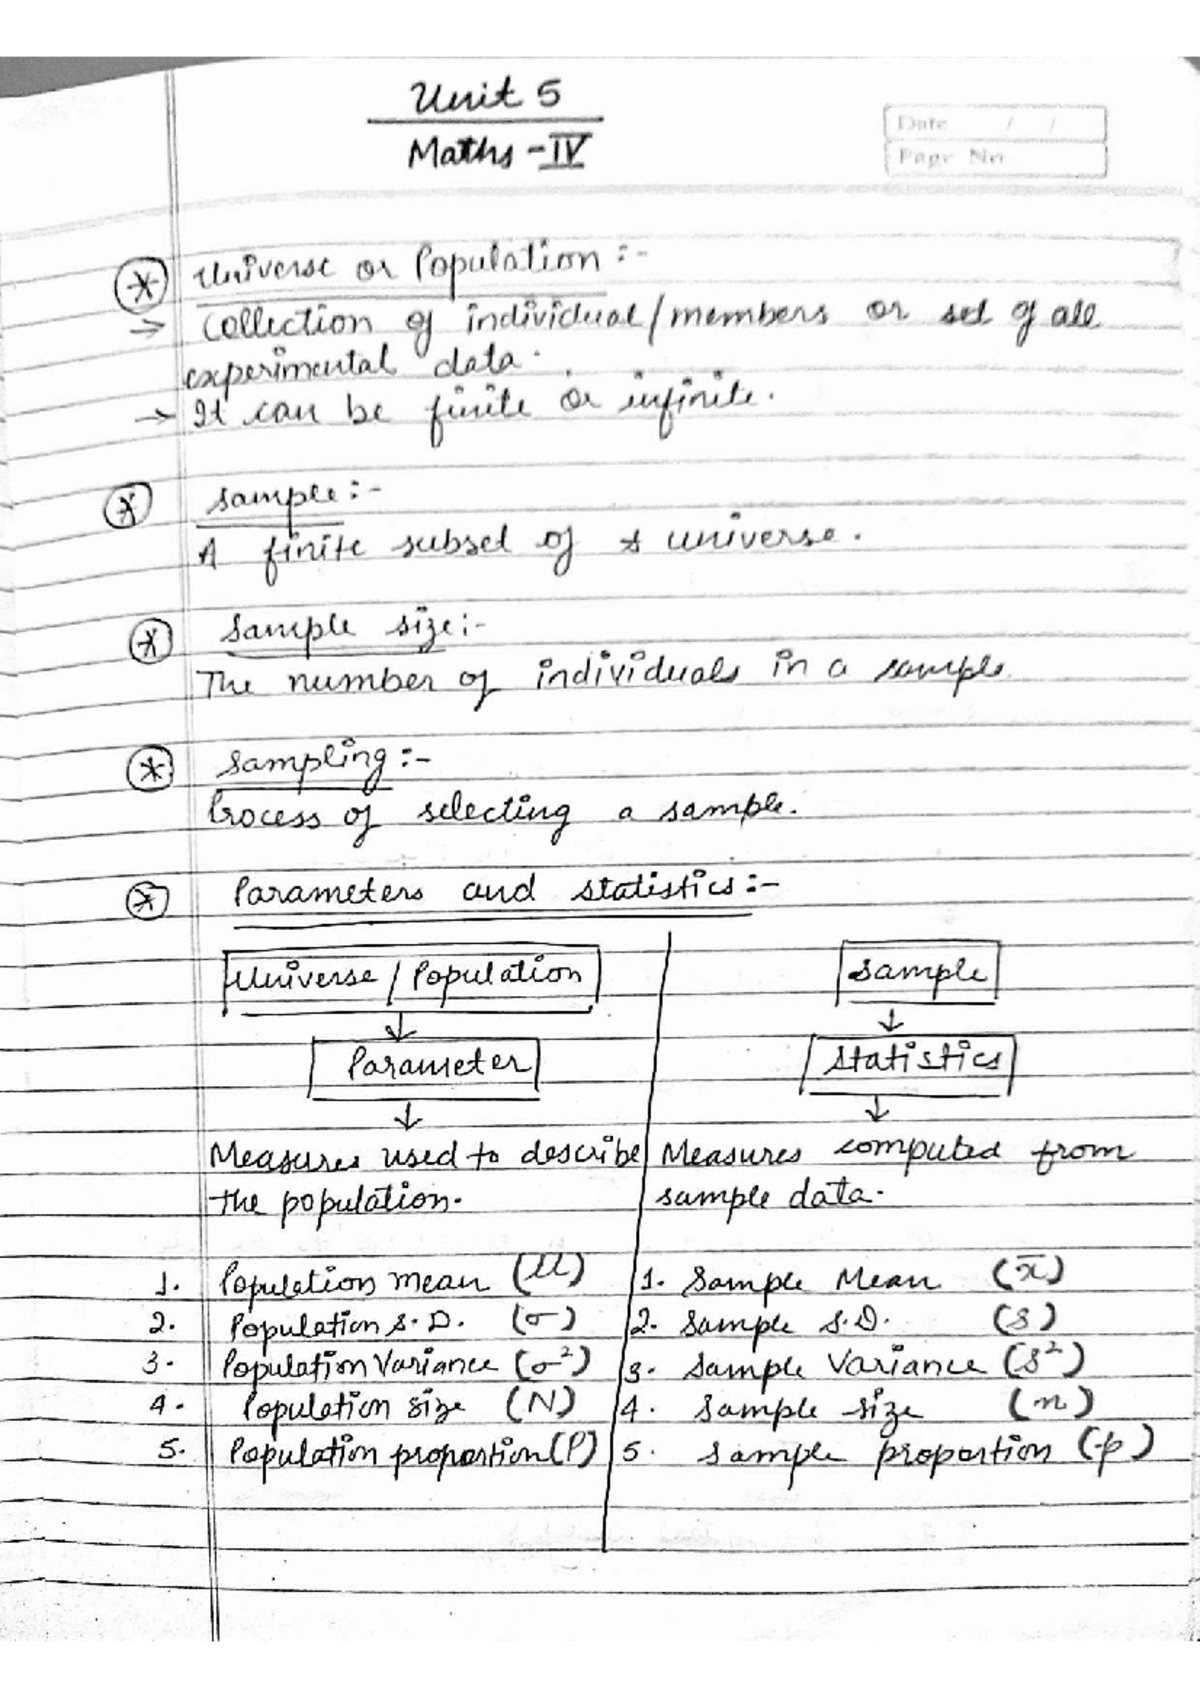 Unit 5
Maths - IV
Date / /
Page No
Universe or Population :-
→ Collection of individual/members or set of all
experimental data.
→ It can be finite or infinite.
Sample :-
A finite subset of universe.
Sample size :-
The number of individuals in a sample.
Sampling :-
Process of selecting a sample.
Parameters and Statistics :-
Universe / Population
Sample
↓
↓
Parameter
Statistics
↓
↓
Measures used to describe
the population.
Measures computed from
sample data.
1. Population mean (μ)
1. Sample Mean (x̄)
2. Population S.D. (σ)
2. Sample S.D. (s)
3. Population Variance (σ²)
3. Sample Variance (s²)
4. Population size (N)
4. Sample size (n)
5. Population proportion (P)
5. Sample proportion (p)